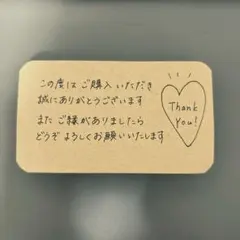 この度は ご購入いただき
誠にありがとうございます
また ご縁がありましたら
どうぞ よろしくお願いいたします
Thank
you!